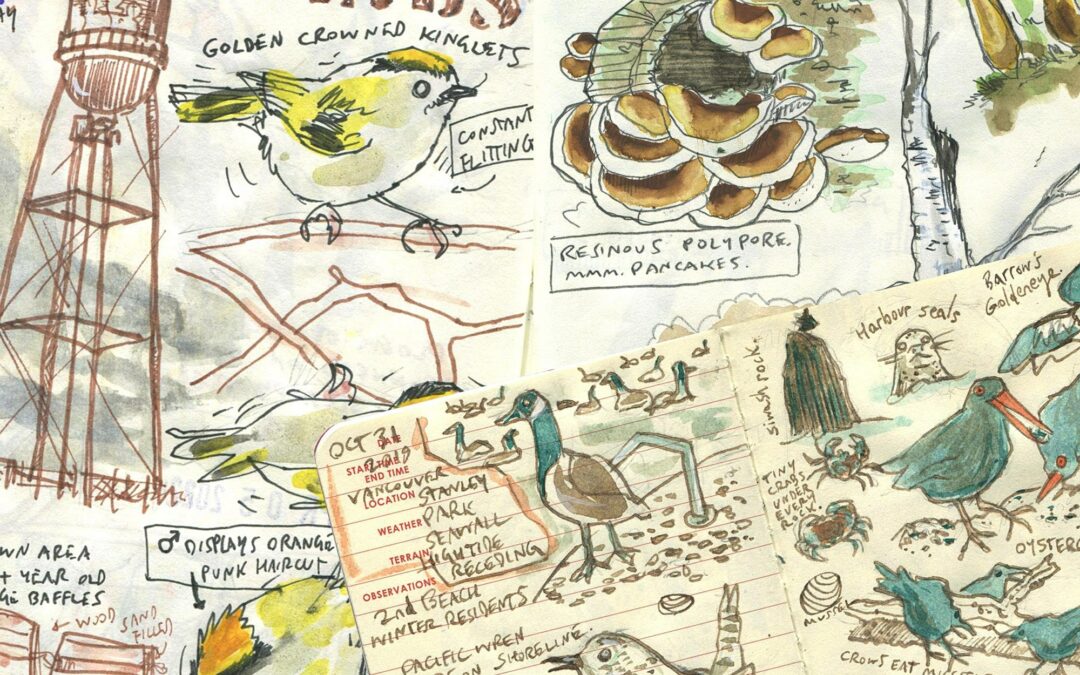 GOLDEN CROWNED KINGLETS
CONSTANT
FLITTING
RESINOUS POLYPORE.
MMM. PANCAKES.
♂ DISPLAYS ORANGE
PUNK HAIRCUT
WN AREA
+ YEAR OLD
GE BAFFLES
← WOOD SAND
FILLED
OCT 31
DATE
START TIME
END TIME
VANCOUVER
LOCATION STANLEY
PARK
WEATHER
SEAWALL
TERRAIN HIGHTIDE
RECEDING
OBSERVATIONS
2nd BEACH
WINTER RESIDENTS
PACIFIC WREN
ON SHORELINE.
Siwash rock.
Harbour seals
Barrow's
Goldeneye.
TINY
CRABS
UNDER
ROCK.
OYSTERC
MUSSEL
CROWS EAT MUSSELS